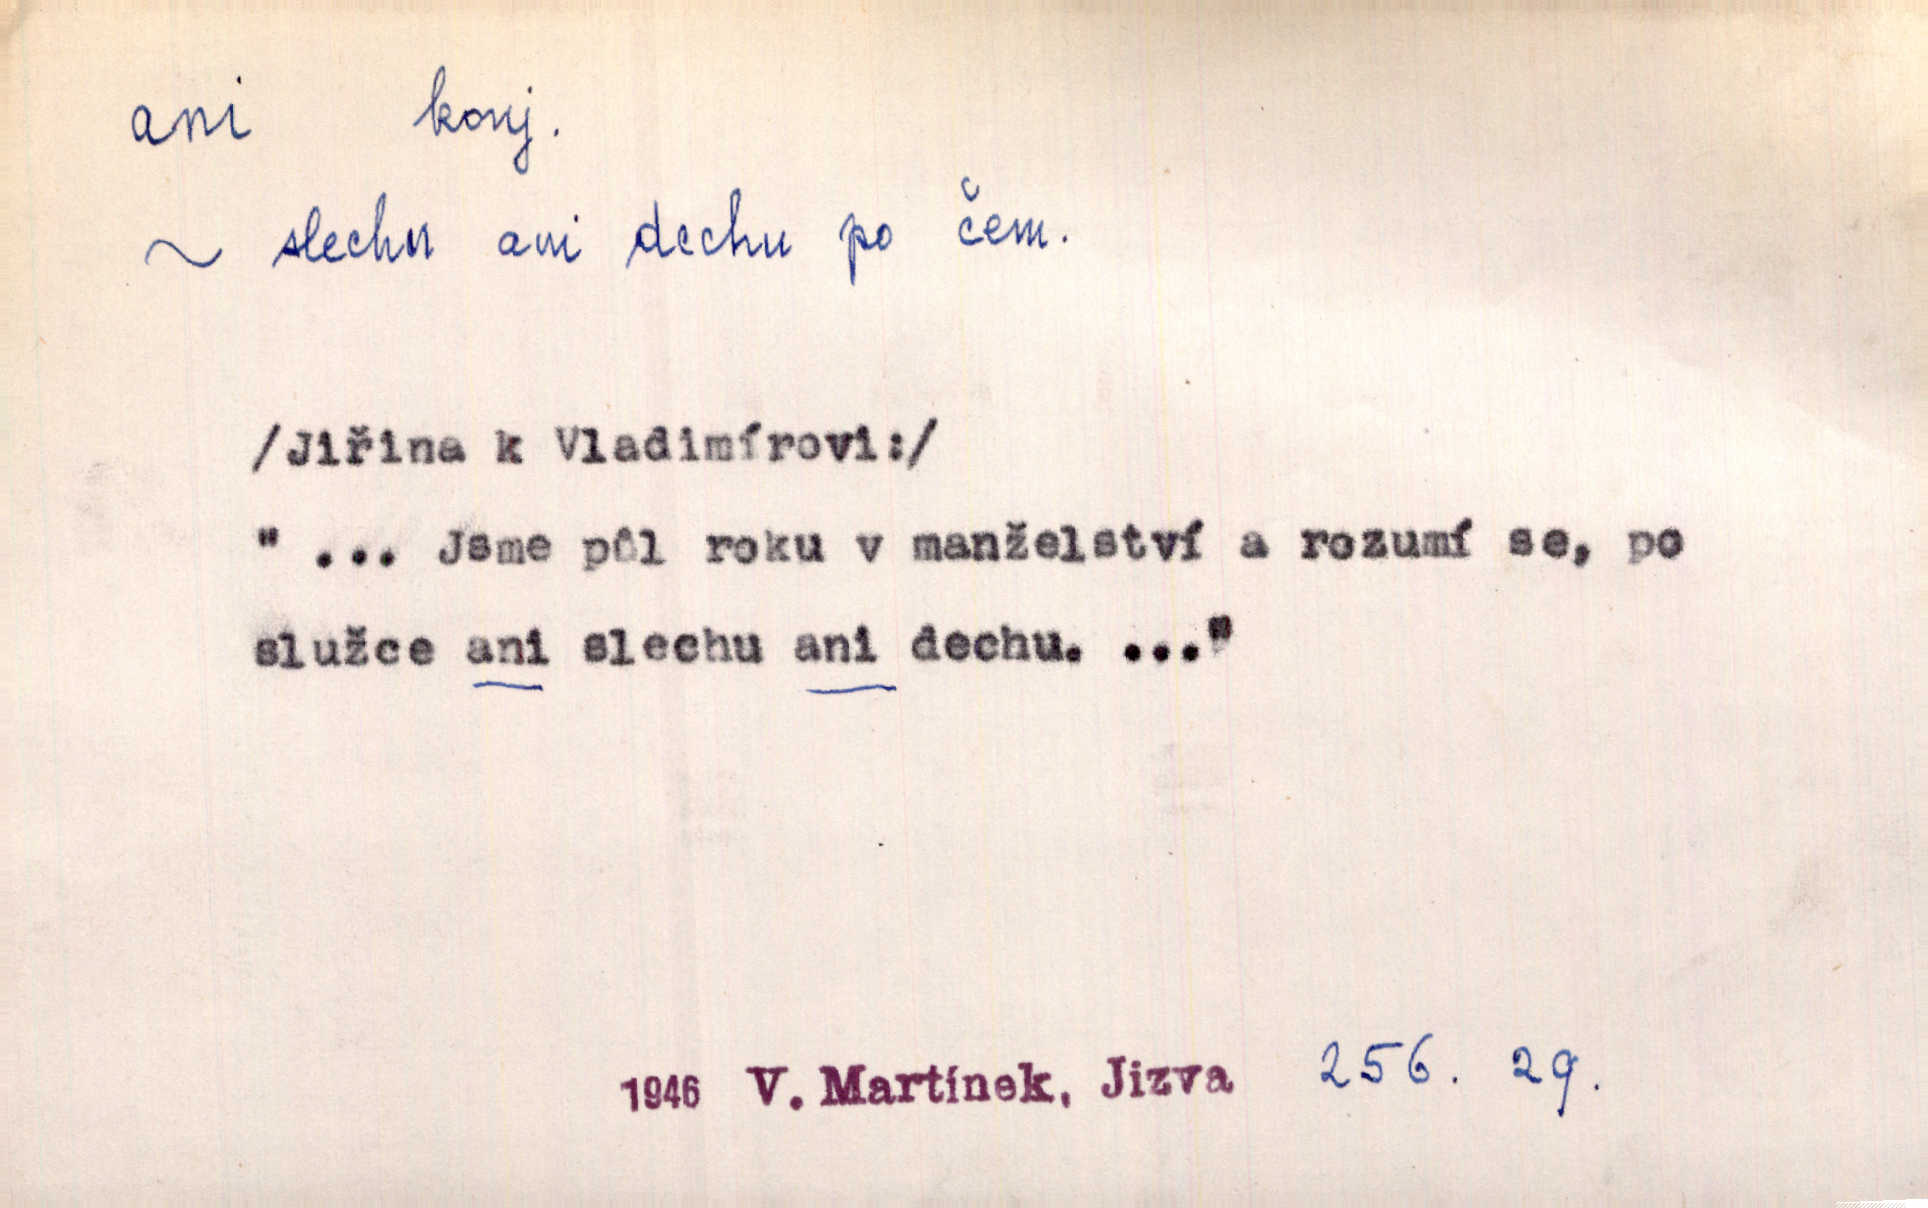 ani konj.
~ slechu ani dechu po čem.
/Jiřina k Vladimírovi:/
" ... Jsme půl roku v manželství a rozumí se, po
služce ani slechu ani dechu. ..."
1946 V. Martínek, Jizva 256. 29.